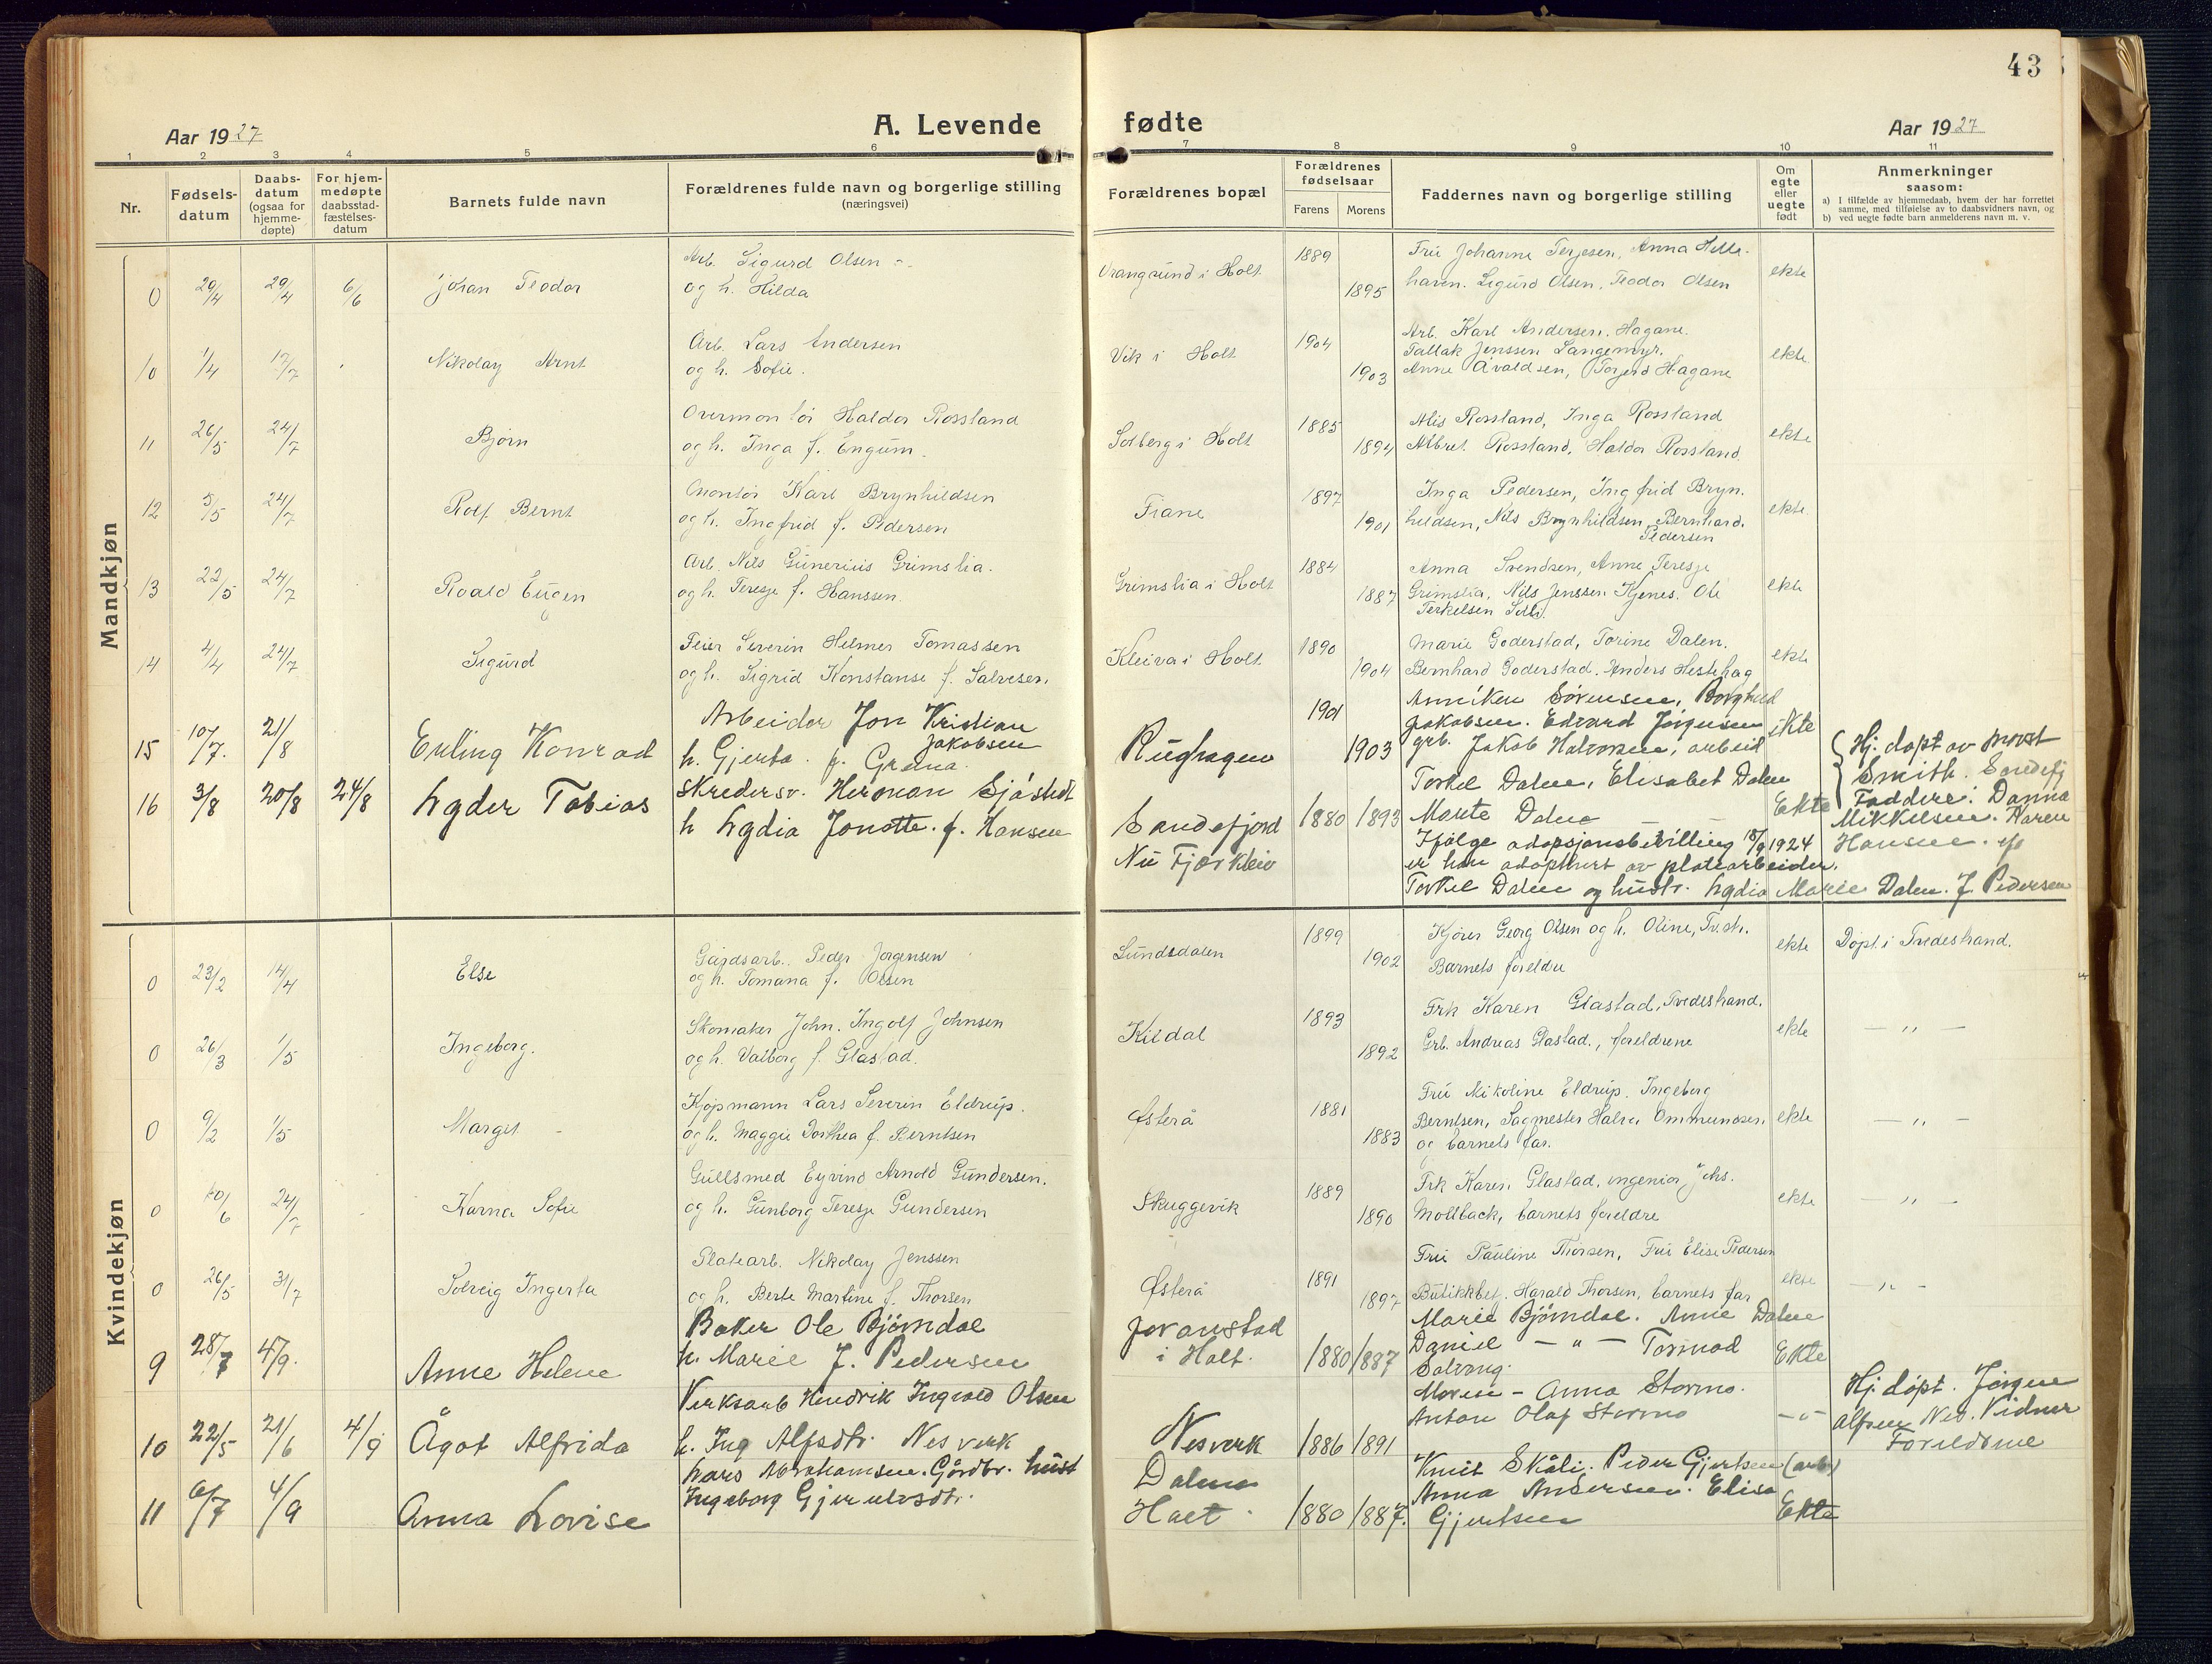 43
Aar 1927
A. Levende fødte
Aar 1927
1 2 3 4 5 6 7 8 9 10 11
Nr.
Fødsels-
datum
Daabs-
datum
(ogsaa for
hjemme-
døpte)
For hjem-
medøpte
daabsstad-
fæstelses-
datum
Barnets fulde navn
Forældrenes fulde navn og borgerlige stilling
(næringsvei)
Forældrenes bopæl
Forældrenes
fødselsaar
Farens Morens
Faddernes navn og borgerlige stilling
Om
egte
eller
uegte
født
Anmerkninger
saasom:
a) I tilfælde av hjemmedaab, hvem der har forrettet
samme, med tilføielse av to daabsvidners navn, og
b) ved uegte fødte barn anmelderens navn m. v.
Mandkjøn
0 29/4 29/4 6/6 Johan Teodor
Arb. Sigurd Olsen
og h. Hilda
Vrangsund i Holt 1889 1895
Fru Johanne Terjesen, Anna
Sigurd Olsen, Teodor Olsen
ekte
10 1/4 17/7 Nikolay Arnt
Arb. Lars Andersen
og h. Sofie.
Vik i Holt 1904 1903
Arb. Karl Andersen. Hagane.
Tallak Jenssen Langemyr.
Anne Avaldsen, Torjerd Hagane
ekte
11 26/5 24/7 Bjørn
Overmontør Haldor Rossland
og h. Inga f. Engum.
Solberg i Holt 1885 1894
Alis Rossland, Inga Rossland
Albret Rossland, Haldor Rossland
ekte
12 5/5 24/7 Rolf Bernt
Montør Karl Brynhildsen
og h. Ingfrid f. Pedersen
Fiane 1897 1901
Inga Pedersen, Ingfrid Bryn.
hildsen, Nils Brynhildsen, Bernhard.
Pedersen
ekte.
13 22/5 24/7 Roald Eugen
Arb. Nils Gunerius Grimslia.
og h. Teresje f. Hanssen.
Grimslia i Holt 1884 1887
Anna Svendsen, Anne Teresje
Grimslia, Nils Jenssen Kjenes. Ole
Terkelsen
ekte
14 4/4 24/7 Sigurd
Feier Severin Helmer Tomassen
og h. Sigrid Konstanse f. Salvesen.
Kleiva i Holt 1890 1904
Marie Goderstad, Torine Dalen.
Bernhard Goderstad. Anders Hestehag
ekte
15 10/7. 21/8 Erling Konrad
Arbeider Jon Kristian
Jakobsen
h. Gjerta. f. Greina.
Rughagen 1901 1903
Anniken Sørensen, Borghild
Jakobsen. Edvard Jørgensen
grb. Jakob Halvorsen, arbeid
ekte
16 3/8 20/8 24/8 Lyder Tobias
Skredersv. Herman Sjøstedt
h Lydia Jonette. f. Hansen
Sandefjord
Nu Fjærkleiv
1880 1893
Torkel Dalen, Elisabet Dalen
Marte Dalen
Ifølge adopsjonsbevilling 15/9 1924
er han adoptert av platearbeider.
Torkel Dalen og hustr. Lydia Marie Dalen. f. Pedersen
Ekte
Hj. døpt av prost
Smith. Sandefj
Faddere: Danna
Mikkelsen. Karen
Hansen.
Kvindekjøn
0 23/2 14/4 Else
Gårdsarb. Peder Jørgensen
og h. Tomana f. Olsen
Lundsdalen 1899 1902
Kjører Georg Olsen og h. Oline, Tv.str.
Barnets foreldre
ekte Døpt i Tvedestrand.
0 26/3 1/5 Ingeborg.
Skomaker John. Ingolf Johnsen
og h. Valborg f. Glastad.
Kildal 1893 1892
Frk Karen Glastad, Tvedestrand.
Grb. Andreas Glastad., foreldrene
ekte — " —
0 9/2 1/5 Margit
Kjøpmann Lars Severin Eldrup.
og h. Maggie Dorthea f. Berntsen
Østerå 1881 1883
Fru Mikoline Eldrup. Ingeborg
Berntsen, Sagmester Halvor Ommundsen,
og barnets far.
ekte — " —
0 10/6 24/7 Karna Sofie
Gullsmed Eyvind Arnold Gundersen.
og h. Gunborg Teresje Gundersen
Skuggevik 1889 1890
Frk Karen Glastad, ingeniør Johs.
Mollback, barnets foreldre
ekte — " —
0 26/5 31/7 Solveig Ingerta
Platearb. Nikolay Jenssen
og h. Berte Martine f. Thorsen
Østerå 1891 1897
Fru Pauline Thorsen, Fru Elise Pedersen
Butikkbet. Harald Thorsen, barnets far
ekte — " —
9 28/7 4/9. Anne Helene
Baker Ole Bjørndal
h. Marie f. Pedersen
Jovanstad
i Holt. 1880 1887
Marie Bjørndal. Anne Dalen
Daniel — " — Tormod
Ekte
10 22/5 21/6 4/9 Ågot Alfrida
Verksarb Hendrik Ingvald Olsen
h. Ing Alfsdtr. Nesverk
Nesverk 1886 1891
Moren - Anna Stormo.
Anton Olaf Stormo
— " —
Hj. døpt. Jørgen
Alfsen Nes. Vidner
Foreldrene
11 6/7 4/9 Anna Lovise
Lars Abrahamsen. Gårdbr. hust
Ingeborg Gjerulvsdtr.
Dalen
Holt 1880 1887.
Knut Skåli. Peder Gjertsen (arb)
Anna Andersen. Elisa
Gjertsen
Ekte